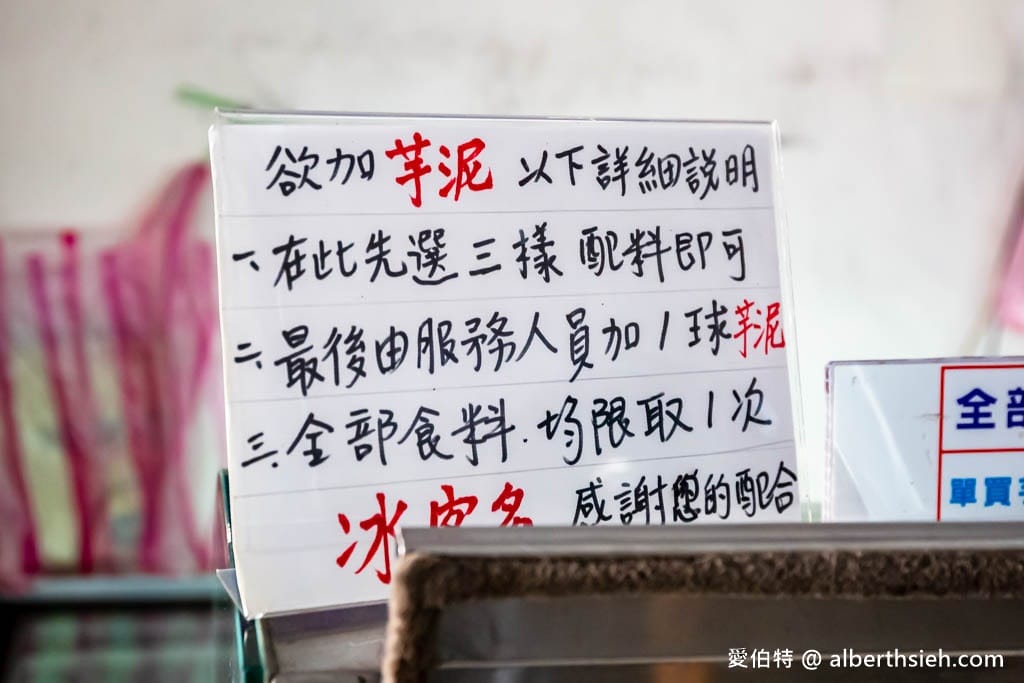 欲加芋泥 以下詳細說明
一、在此先選三樣 配料即可
二、最後由服務人員加1球芋泥
三、全部食料.均限取1次
冰
感謝您的配合
全部
單買
愛伯特 @ alberthsieh.com